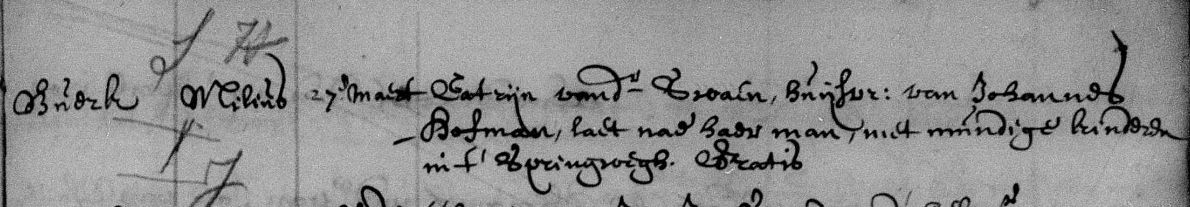 Buerk Milius 27 Maert Catrijn vandr Swaen, huijsvr: van Johannes
Hofman, laet nae haer man, met mundige kinderen
in t' Springwegh. Gratis